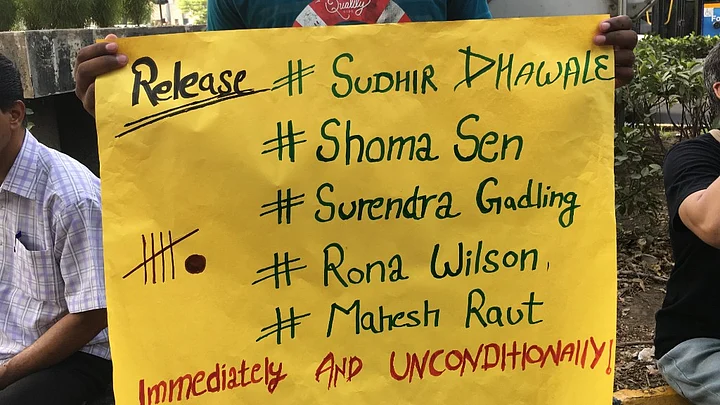 Quality
Release # SUDHIR DHAWALE
# Shoma Sen
# Surendra Gadling
# Rona Wilson,
# Mahesh Raut
Immediately AND UNCONDITIONAllY!